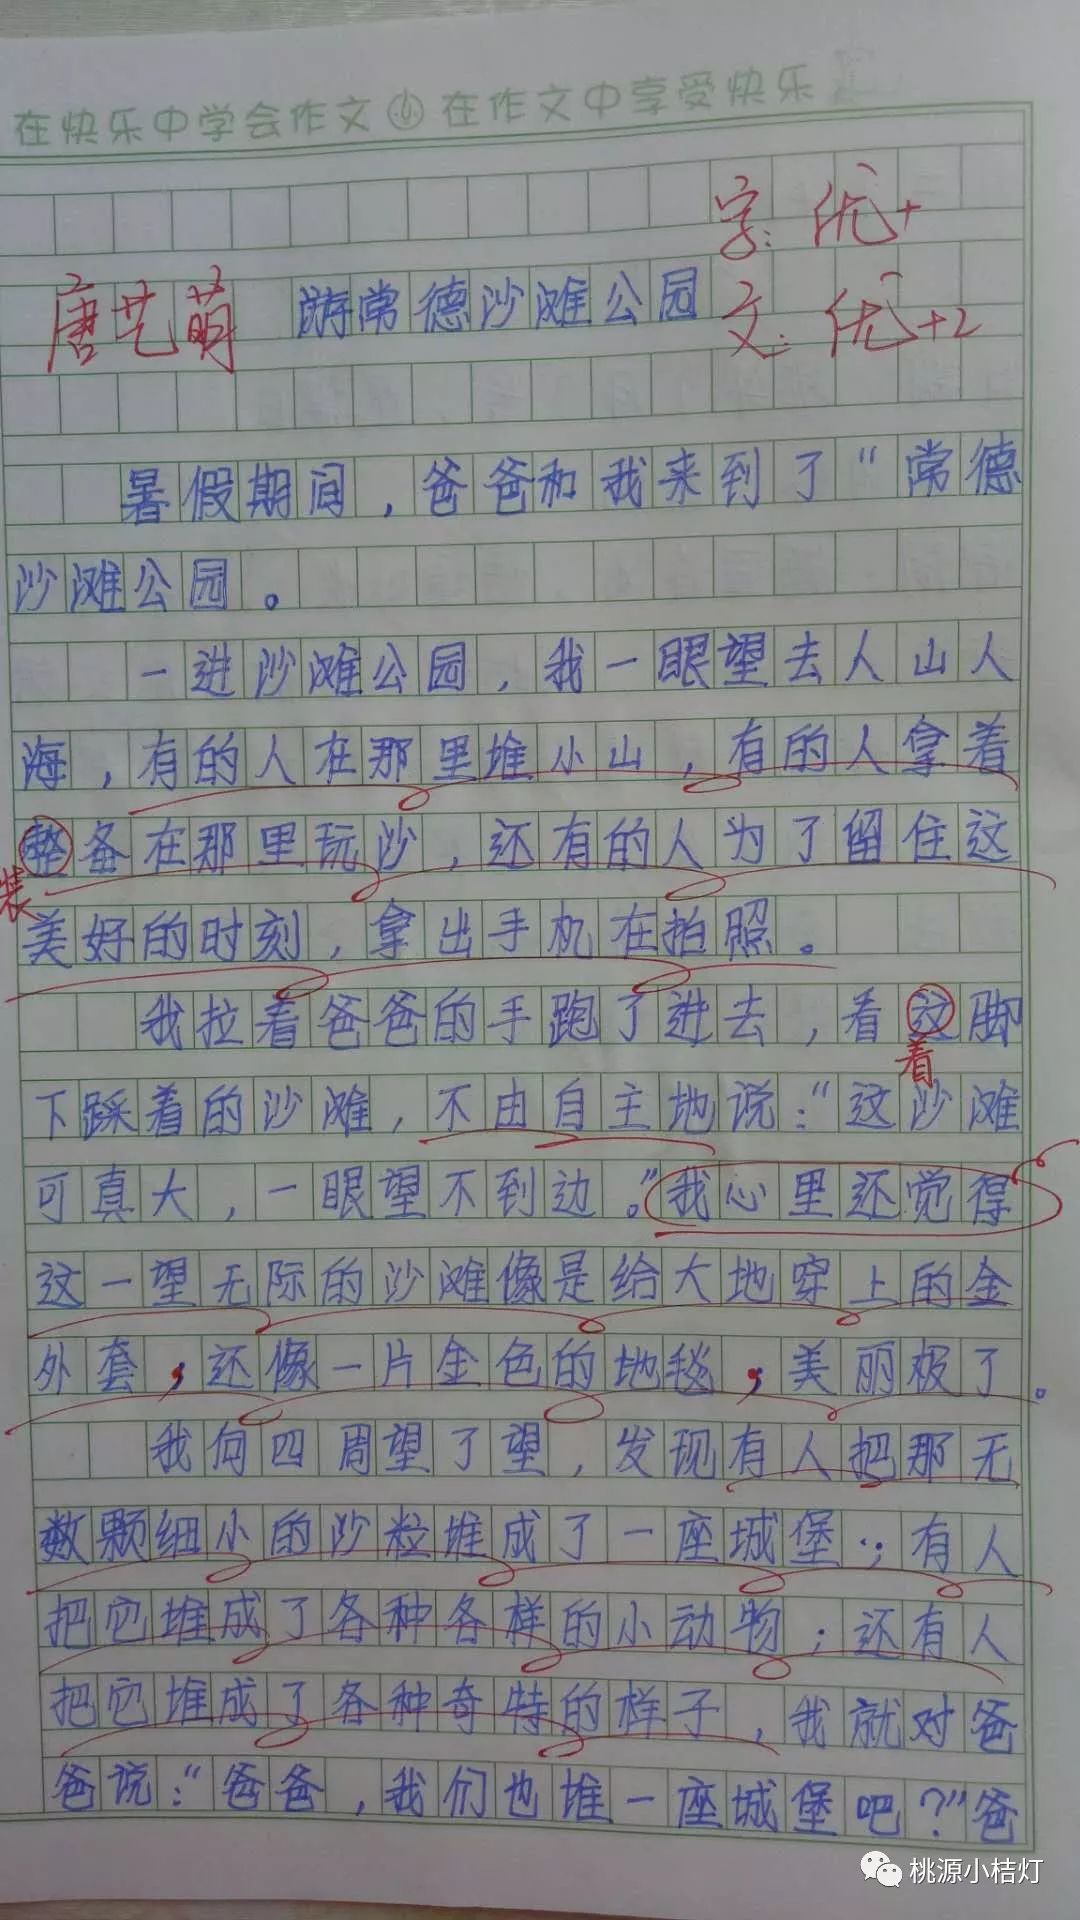 在快乐中学会作文 在作文中享受快乐
字：优+
唐艺萌 游常德沙滩公园
文：优+2
暑假期间，爸爸和我来到了“常德
沙滩公园。
一进沙滩公园，我一眼望去人山人
海，有的人在那里堆小山，有的人拿着
整备在那里玩沙，还有的人为了留住这
装
美好的时刻，拿出手机在拍照。
我拉着爸爸的手跑了进去，看这脚
着
下踩着的沙滩，不由自主地说：“这沙滩
可真大，一眼望不到边。”我心里还觉得
这一望无际的沙滩像是给大地穿上的金
外套，还像一片金色的地毯，美丽极了。
我向四周望了望，发现有人把那无
数颗细小的沙粒堆成了一座城堡；有人
把它堆成了各种各样的小动物；还有人
把它堆成了各种奇特的样子，我就对爸
爸说：“爸爸，我们也堆一座城堡吧？”爸
桃源小桔灯